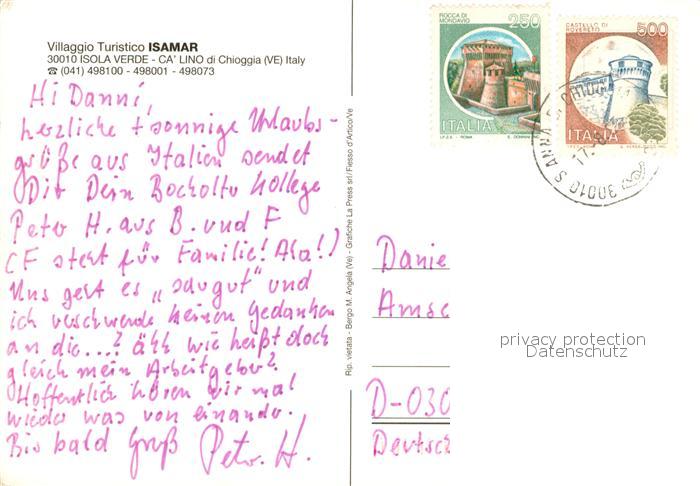 Villaggio Turistico ISAMAR
30010 ISOLA VERDE - CA' LINO di Chioggia (VE) Italy
☎ (041) 498100 - 498001 - 498073
Hi Danni,
herzliche + sonnige Urlaubs-
grüße aus Italien sendet
Dir Dein Bocholter Kollege
Peter H. aus B. und F
(F steht für Familie! Aha!)
Uns geht es „saugut" und
ich verschwende keinen Gedanken
an die...? ähh wie heißt doch
gleich mein Arbeitgeber?
Hoffentlich hören wir mal
wieder was von einander.
Bis bald Gruß Peter. H.
Rip. vietata - Bergo M. Angela (Ve) - Grafiche La Press srl / Fiesso d'Artico/Ve
ROCCA DI
MONDAVIO
250
ITALIA
I.P.Z.S. - ROMA
CASTELLO DI
ROVERETO
500
ITALIA
30010 S.ANNA DI CHIOGGIA
17.
Danie
Amse
D-030
Deutsc
privacy protection
Datenschutz